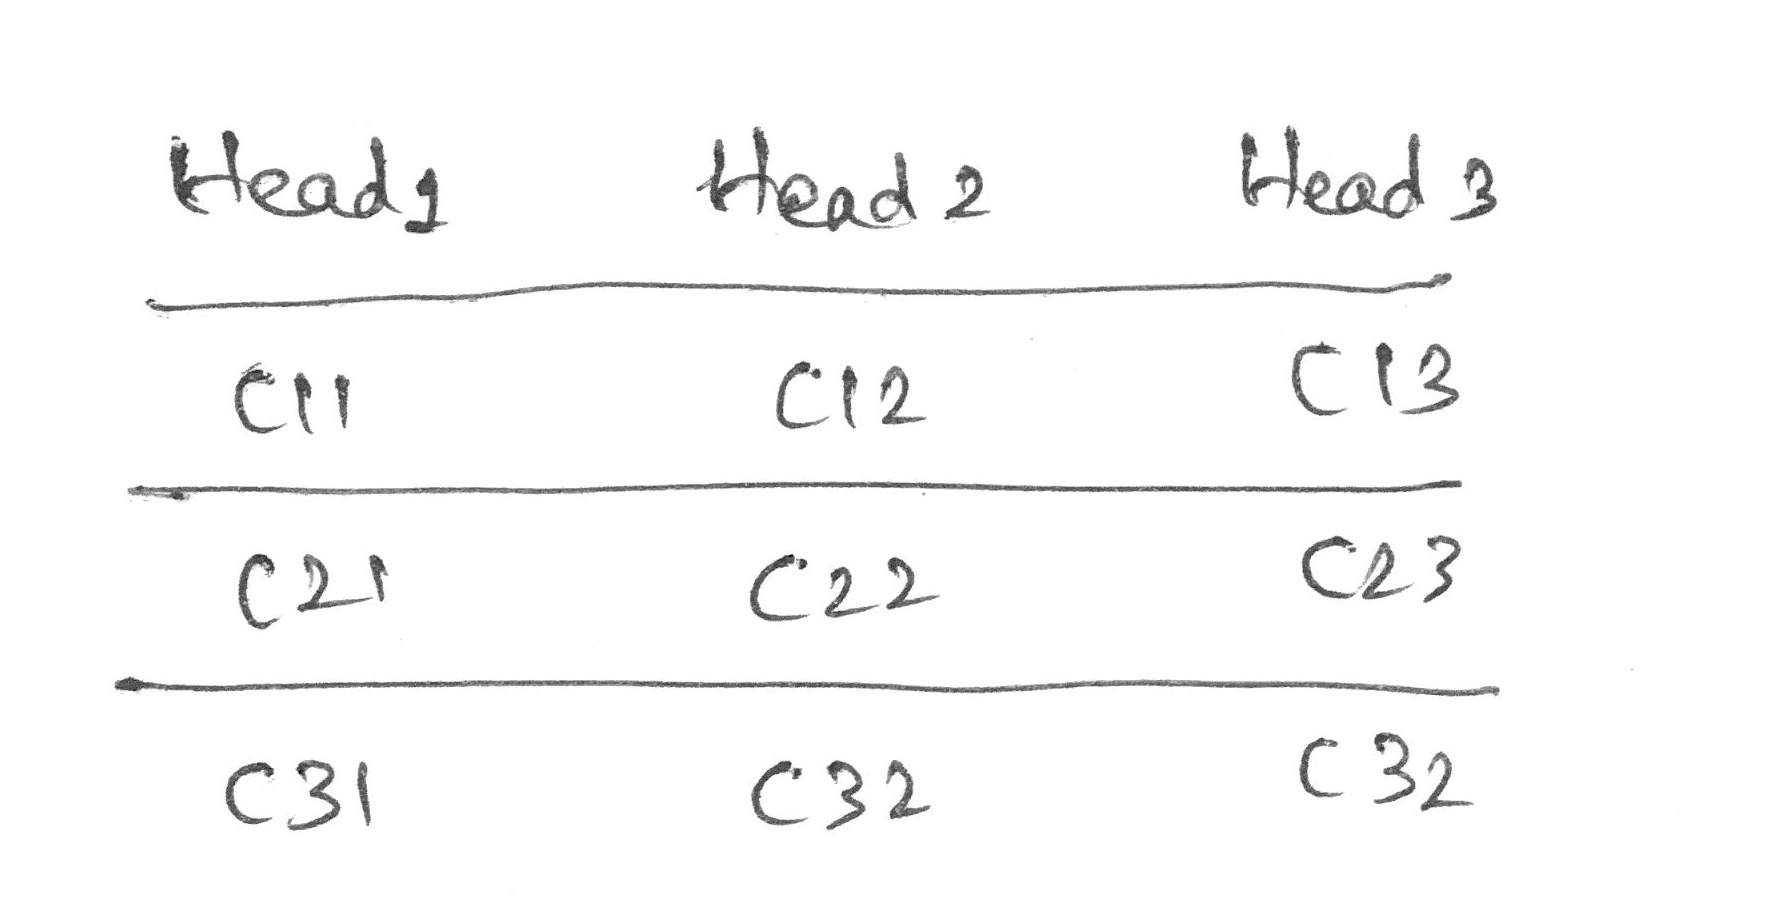 Head1 Head 2 Head 3
C11 C12 C13
C21 C22 C23
C31 C32 C32